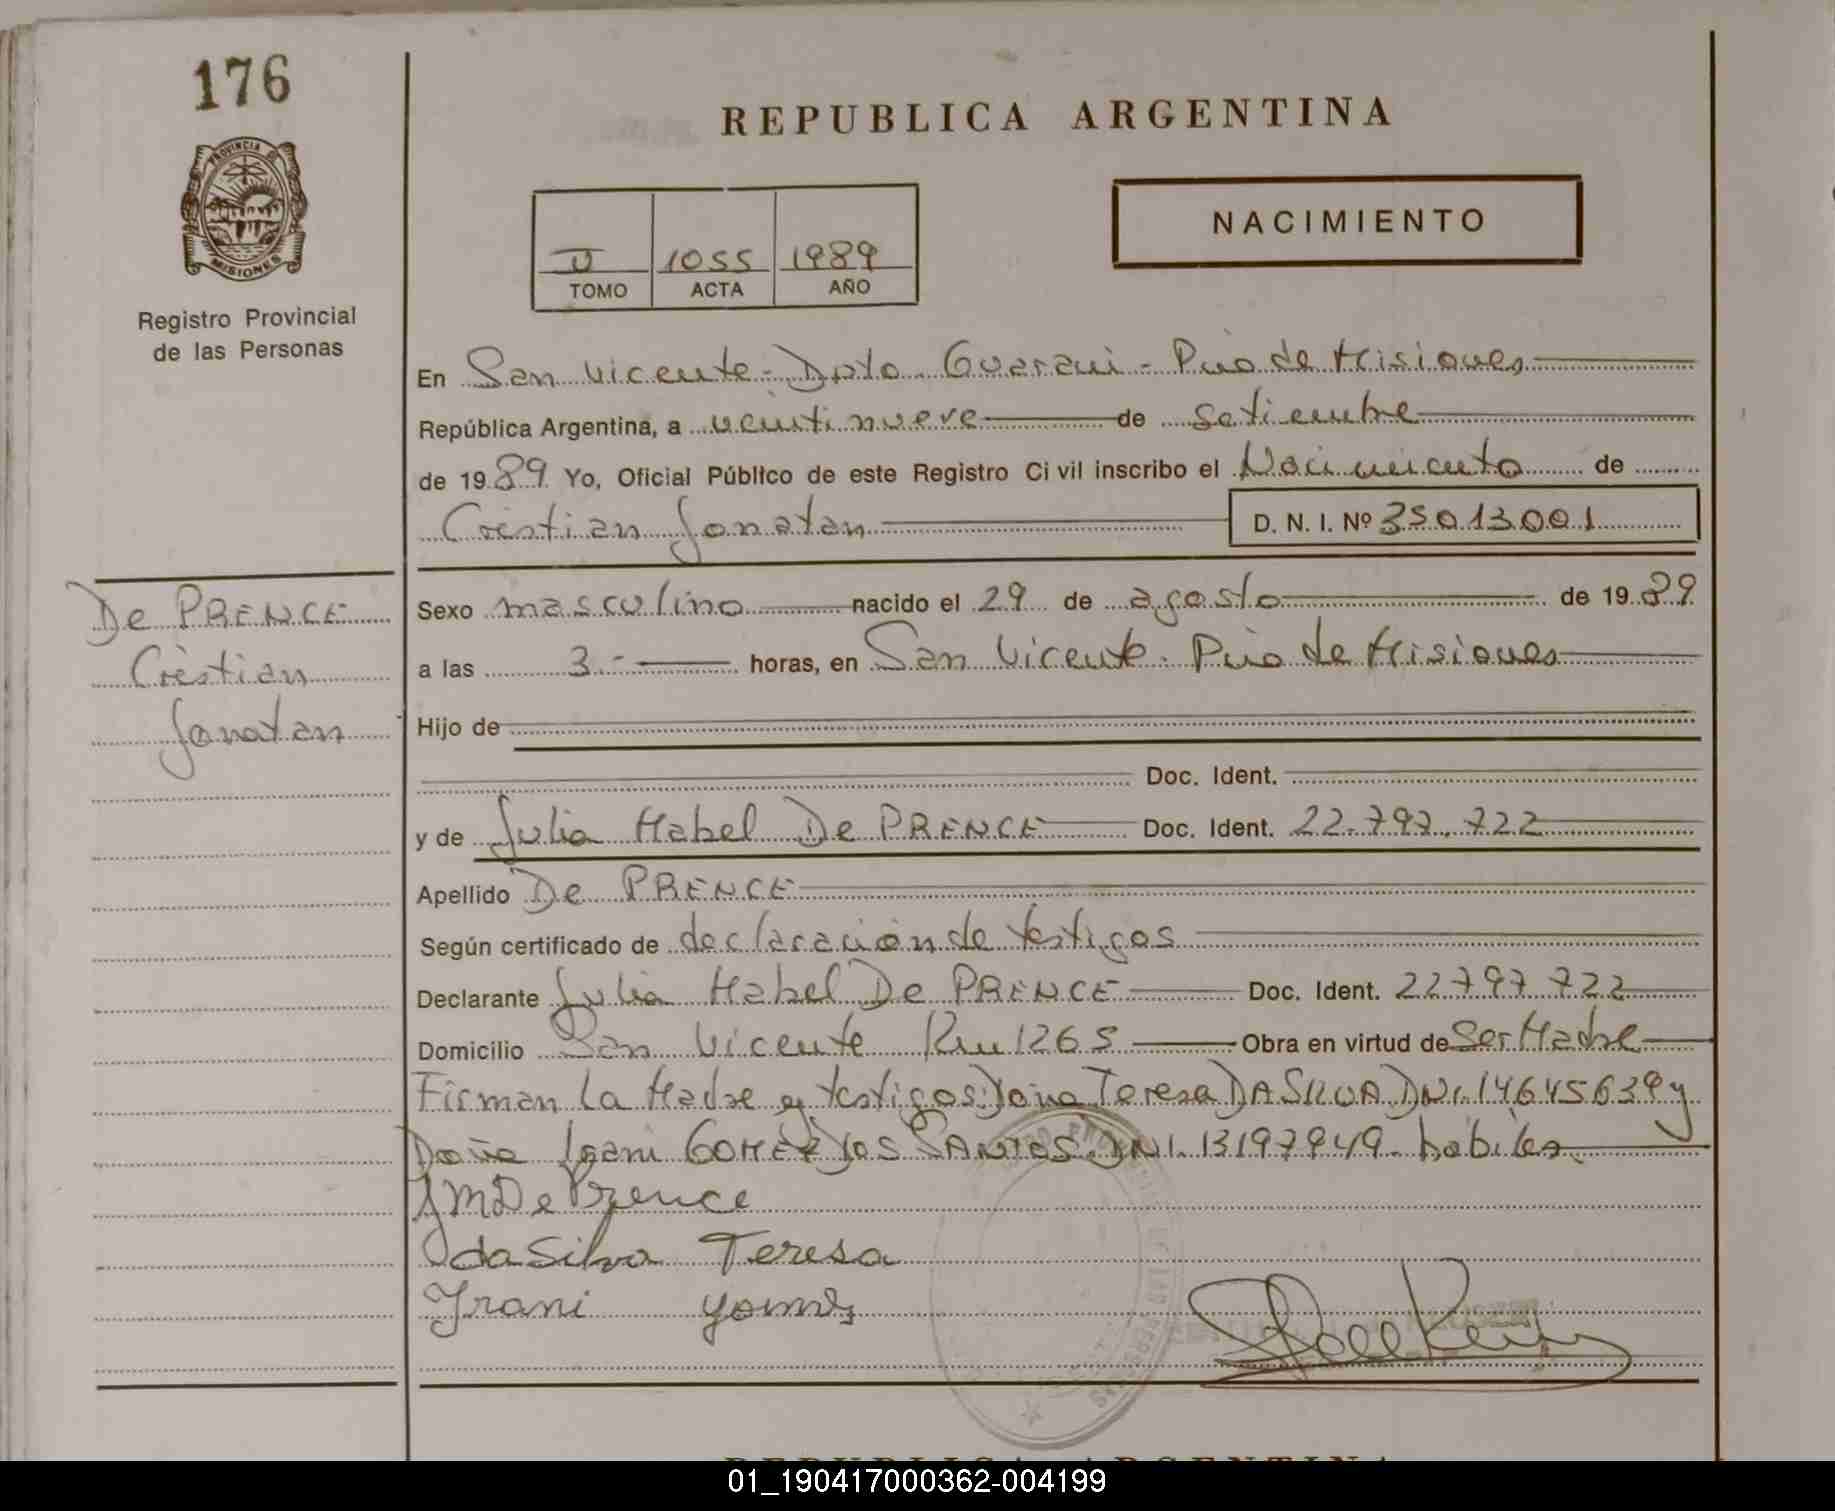 176
REPUBLICA ARGENTINA
PROVINCIA DE
MISIONES
Registro Provincial
de las Personas
II 1055 1989
TOMO ACTA AÑO
NACIMIENTO
En San Vicente - Dpto. Guarani - Pcia de Misiones
República Argentina, a veintinueve de setiembre
de 1989 Yo, Oficial Público de este Registro Civil inscribo el Nacimiento de
Cristian Jonatan D. N. I. Nº 35013001
De PRENCE
Cristian
Jonatan
Sexo masculino nacido el 29 de agosto de 1989
a las 3.- horas, en San Vicente. Pcia de Misiones
Hijo de
Doc. Ident.
y de Julia Mabel De PRENCE Doc. Ident. 22.797.722
Apellido De PRENCE
Según certificado de declaración de testigos
Declarante Julia Mabel De PRENCE Doc. Ident. 22797722
Domicilio San Vicente Km 1265 Obra en virtud de Ser Madre
Firman la Madre y testigos: Doña Teresa DA SILVA DNI. 14645639 y
Doña Irani GOMEZ DOS SANTOS. DNI. 13197949. habiles.
JMDe Prence
da Silva Teresa
Irani Gomes
REPUBLICA ARGENTINA
01_190417000362-004199